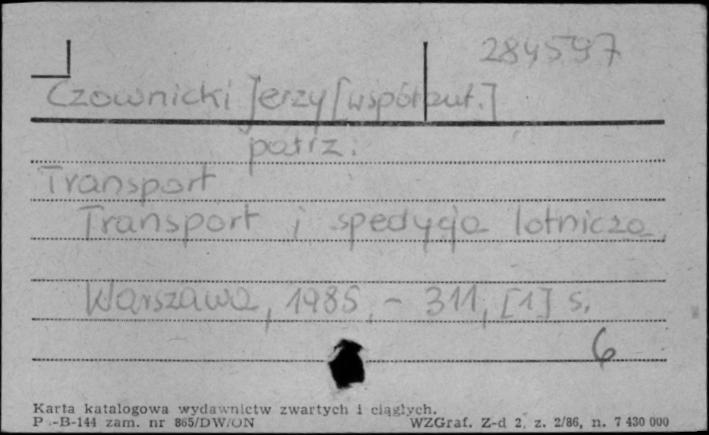 284597
Czownicki Jerzy [współaut.]
patrz:
Transport
Transport i spedycja lotnicza,
Warszawa, 1985, - 311, [1] s.
6
Karta katalogowa wydawnictw zwartych i ciągłych.
zam. nr 865/DW/ON WZGraf. Z-d 2, z. 2/86, n. 7 430 000